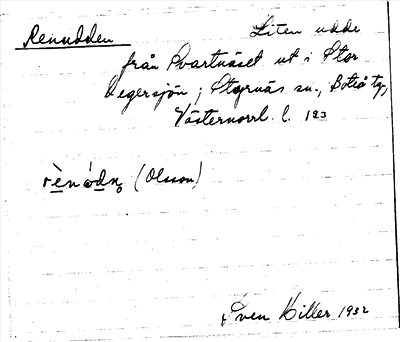 Renudden
Liten udde
från Svartnäset ut i Stor
Degersjön; Styrnäs sn., Boteå tg,
Västernorrl. l. 123
rènódn̥ (Olsson)
Sven Hiller 1932